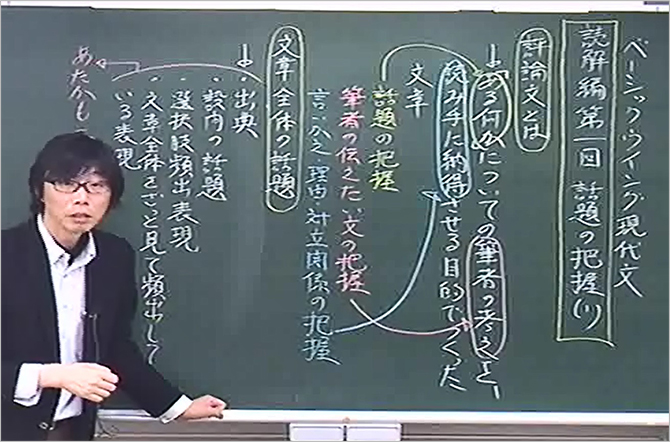 ベーシックウイング現代文
読解編第一回 話題の把握(1)
評論文とは
ある何かについての筆者の考えを、
読み手に納得させる目的でつくった
文章
話題の把握
筆者の伝えたい文の把握
言いかえ・理由・対立関係の把握
文章全体の話題
・出典
・設内の話題
・選択肢頻出表現
・文章全体をざっと見て頻出して
いる表現
あたかも